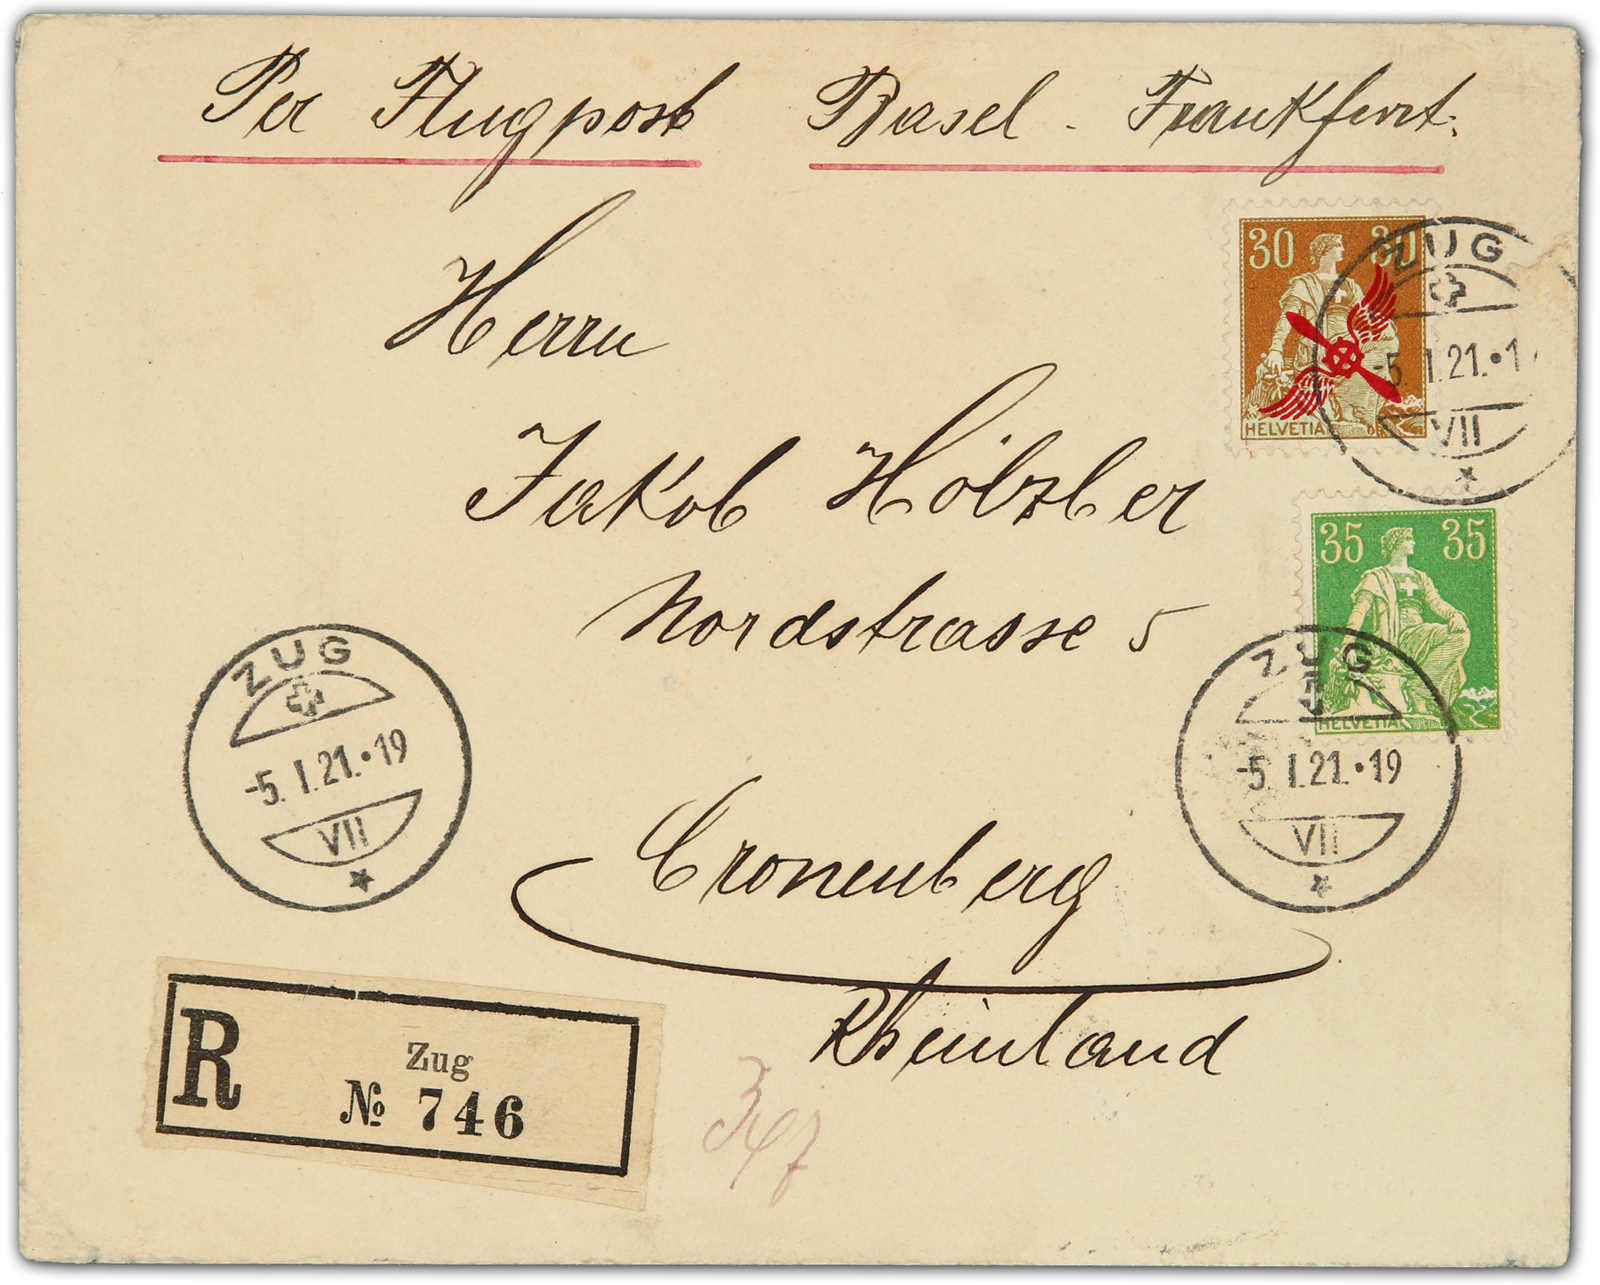 Per Flugpost Basel - Frankfurt.
Herrn
Jakob Hölzber
Nordstrasse 5
Cronenberg
Rheinland
30 30
HELVETIA
ZUG
-5. I.21.•1
VII
35 35
HELVETIA
ZUG
-5. I.21.•19
VII
ZUG
-5. I.21.•19
VII
R
Zug
№ 746